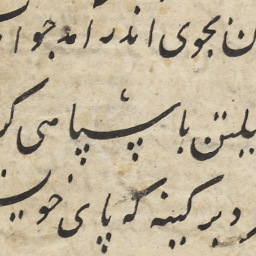 ن بجوی اندر آمد جوا
یلتن با سپاهی
د بر کینه که پای خویـ